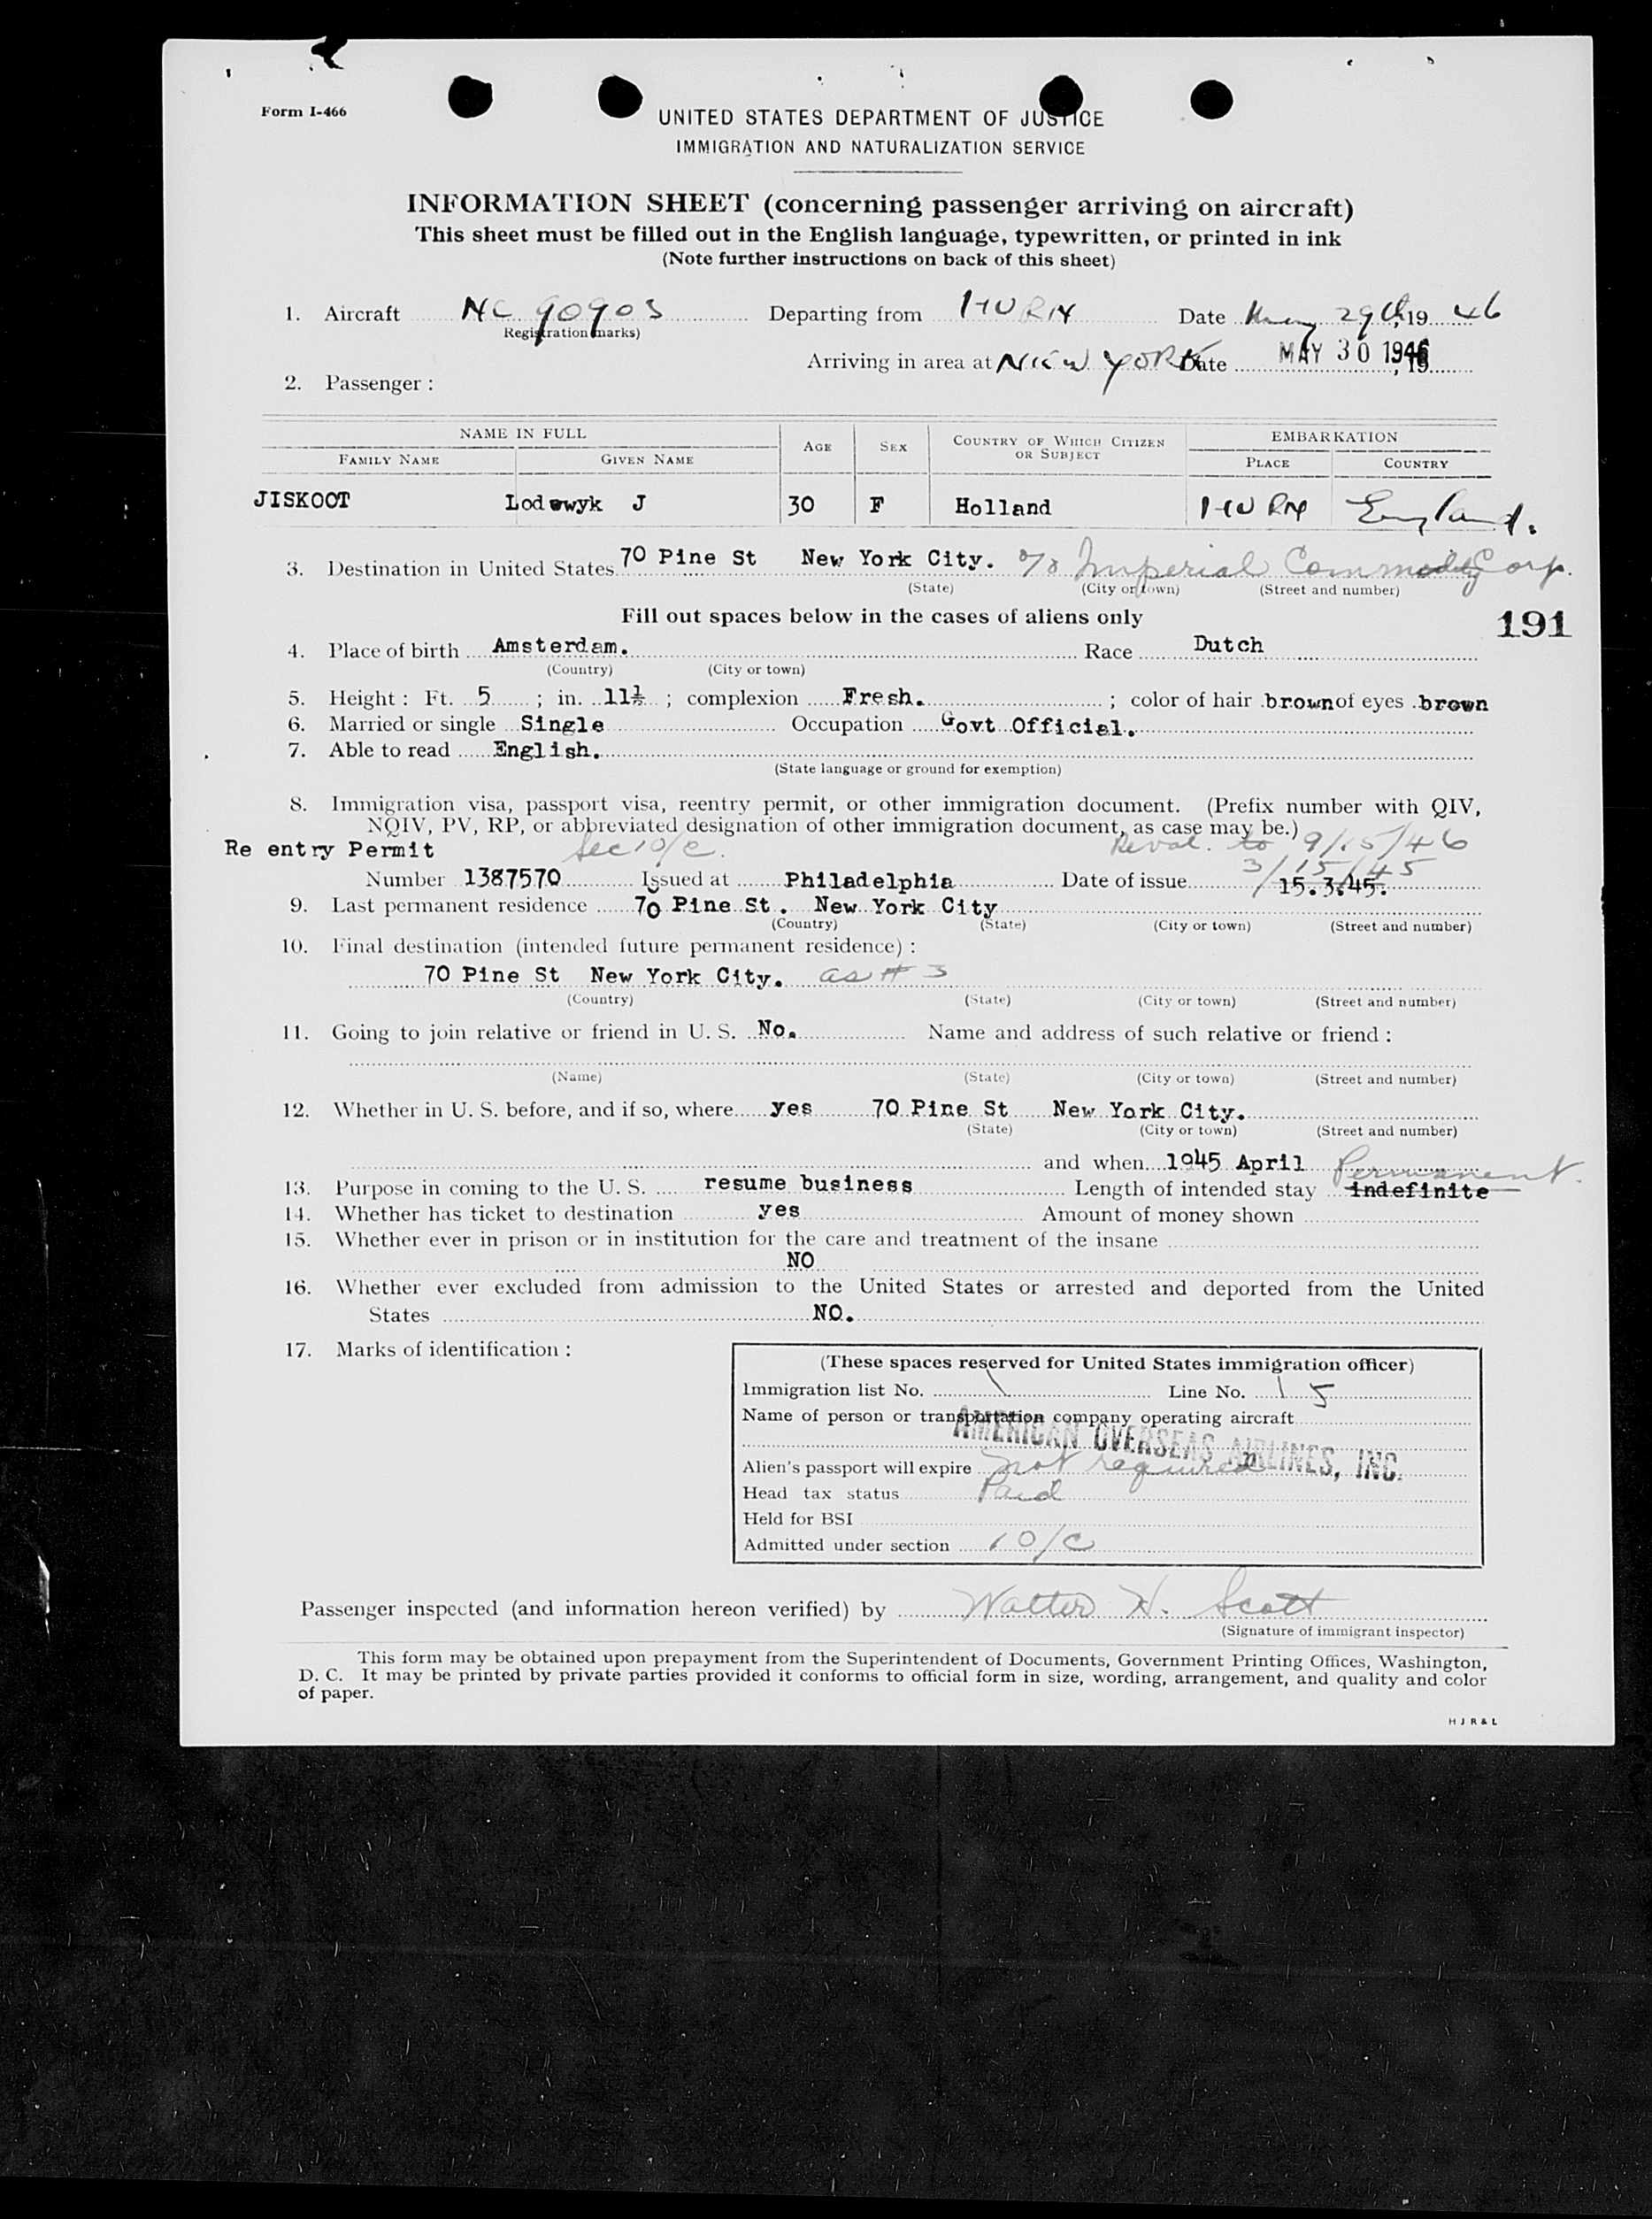 Form I-466
UNITED STATES DEPARTMENT OF JUSTICE
IMMIGRATION AND NATURALIZATION SERVICE
INFORMATION SHEET (concerning passenger arriving on aircraft)
This sheet must be filled out in the English language, typewritten, or printed in ink
(Note further instructions on back of this sheet)
1. Aircraft NC 90903 Departing from HURN Date May 29th, 19 46
(Registration marks)
Arriving in area at NEW YORK Date MAY 30 1946, 19
2. Passenger :
NAME IN FULL AGE SEX COUNTRY OF WHICH CITIZEN OR SUBJECT EMBARKATION
FAMILY NAME GIVEN NAME PLACE COUNTRY
JISKOOT Lodewyk J 30 F Holland HURN England.
3. Destination in United States 70 Pine St New York City. c/o Imperial Commodity Corp.
(State) (City or town) (Street and number)
Fill out spaces below in the cases of aliens only
191
4. Place of birth Amsterdam. Race Dutch
(Country) (City or town)
5. Height : Ft. 5 ; in. 11½ ; complexion Fresh. ; color of hair brown of eyes brown
6. Married or single Single Occupation Govt Official.
7. Able to read English.
(State language or ground for exemption)
8. Immigration visa, passport visa, reentry permit, or other immigration document. (Prefix number with QIV,
NQIV, PV, RP, or abbreviated designation of other immigration document, as case may be.)
Re entry Permit Sec 10/c. Reval. to 9/15/46
3/15/45
Number 1387570 Issued at Philadelphia Date of issue 15.3.45.
9. Last permanent residence 70 Pine St. New York City
(Country) (State) (City or town) (Street and number)
10. Final destination (intended future permanent residence) :
70 Pine St New York City. as # 3
(Country) (State) (City or town) (Street and number)
11. Going to join relative or friend in U. S. No. Name and address of such relative or friend :
(Name) (State) (City or town) (Street and number)
12. Whether in U. S. before, and if so, where yes 70 Pine St New York City.
(State) (City or town) (Street and number)
and when 1945 April Permanent.
13. Purpose in coming to the U. S. resume business Length of intended stay indefinite
14. Whether has ticket to destination yes Amount of money shown
15. Whether ever in prison or in institution for the care and treatment of the insane
NO
16. Whether ever excluded from admission to the United States or arrested and deported from the United
States NO.
17. Marks of identification :
(These spaces reserved for United States immigration officer)
Immigration list No. 1 Line No. 15
Name of person or transportation company operating aircraft
AMERICAN OVERSEAS AIRLINES, INC.
Alien's passport will expire not required
Head tax status Paid
Held for BSI
Admitted under section 10/c
Passenger inspected (and information hereon verified) by Walter H. Scott
(Signature of immigrant inspector)
This form may be obtained upon prepayment from the Superintendent of Documents, Government Printing Offices, Washington,
D. C. It may be printed by private parties provided it conforms to official form in size, wording, arrangement, and quality and color
of paper.
H J R & L